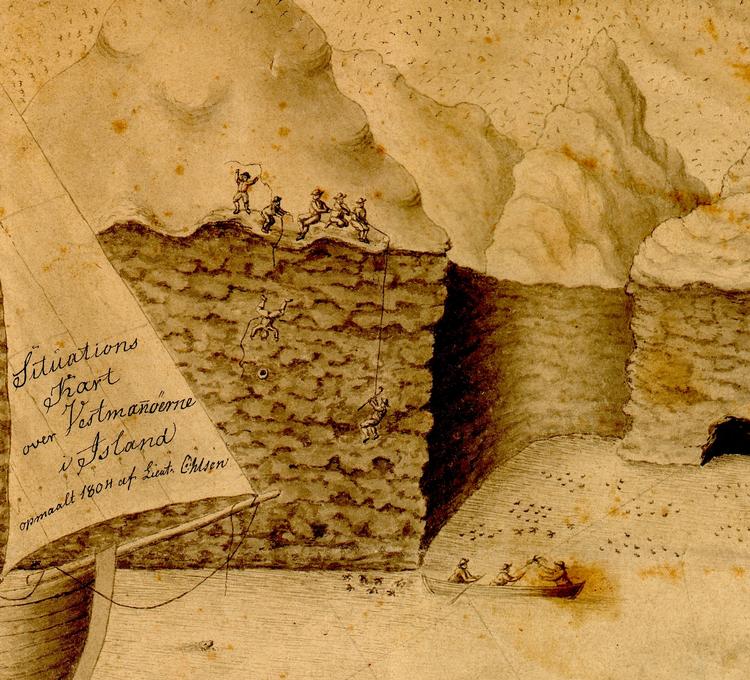 Situations
Kart
over Vestmanöerne
i Island
opmaalt 1804 af Lieut. Ohlsen